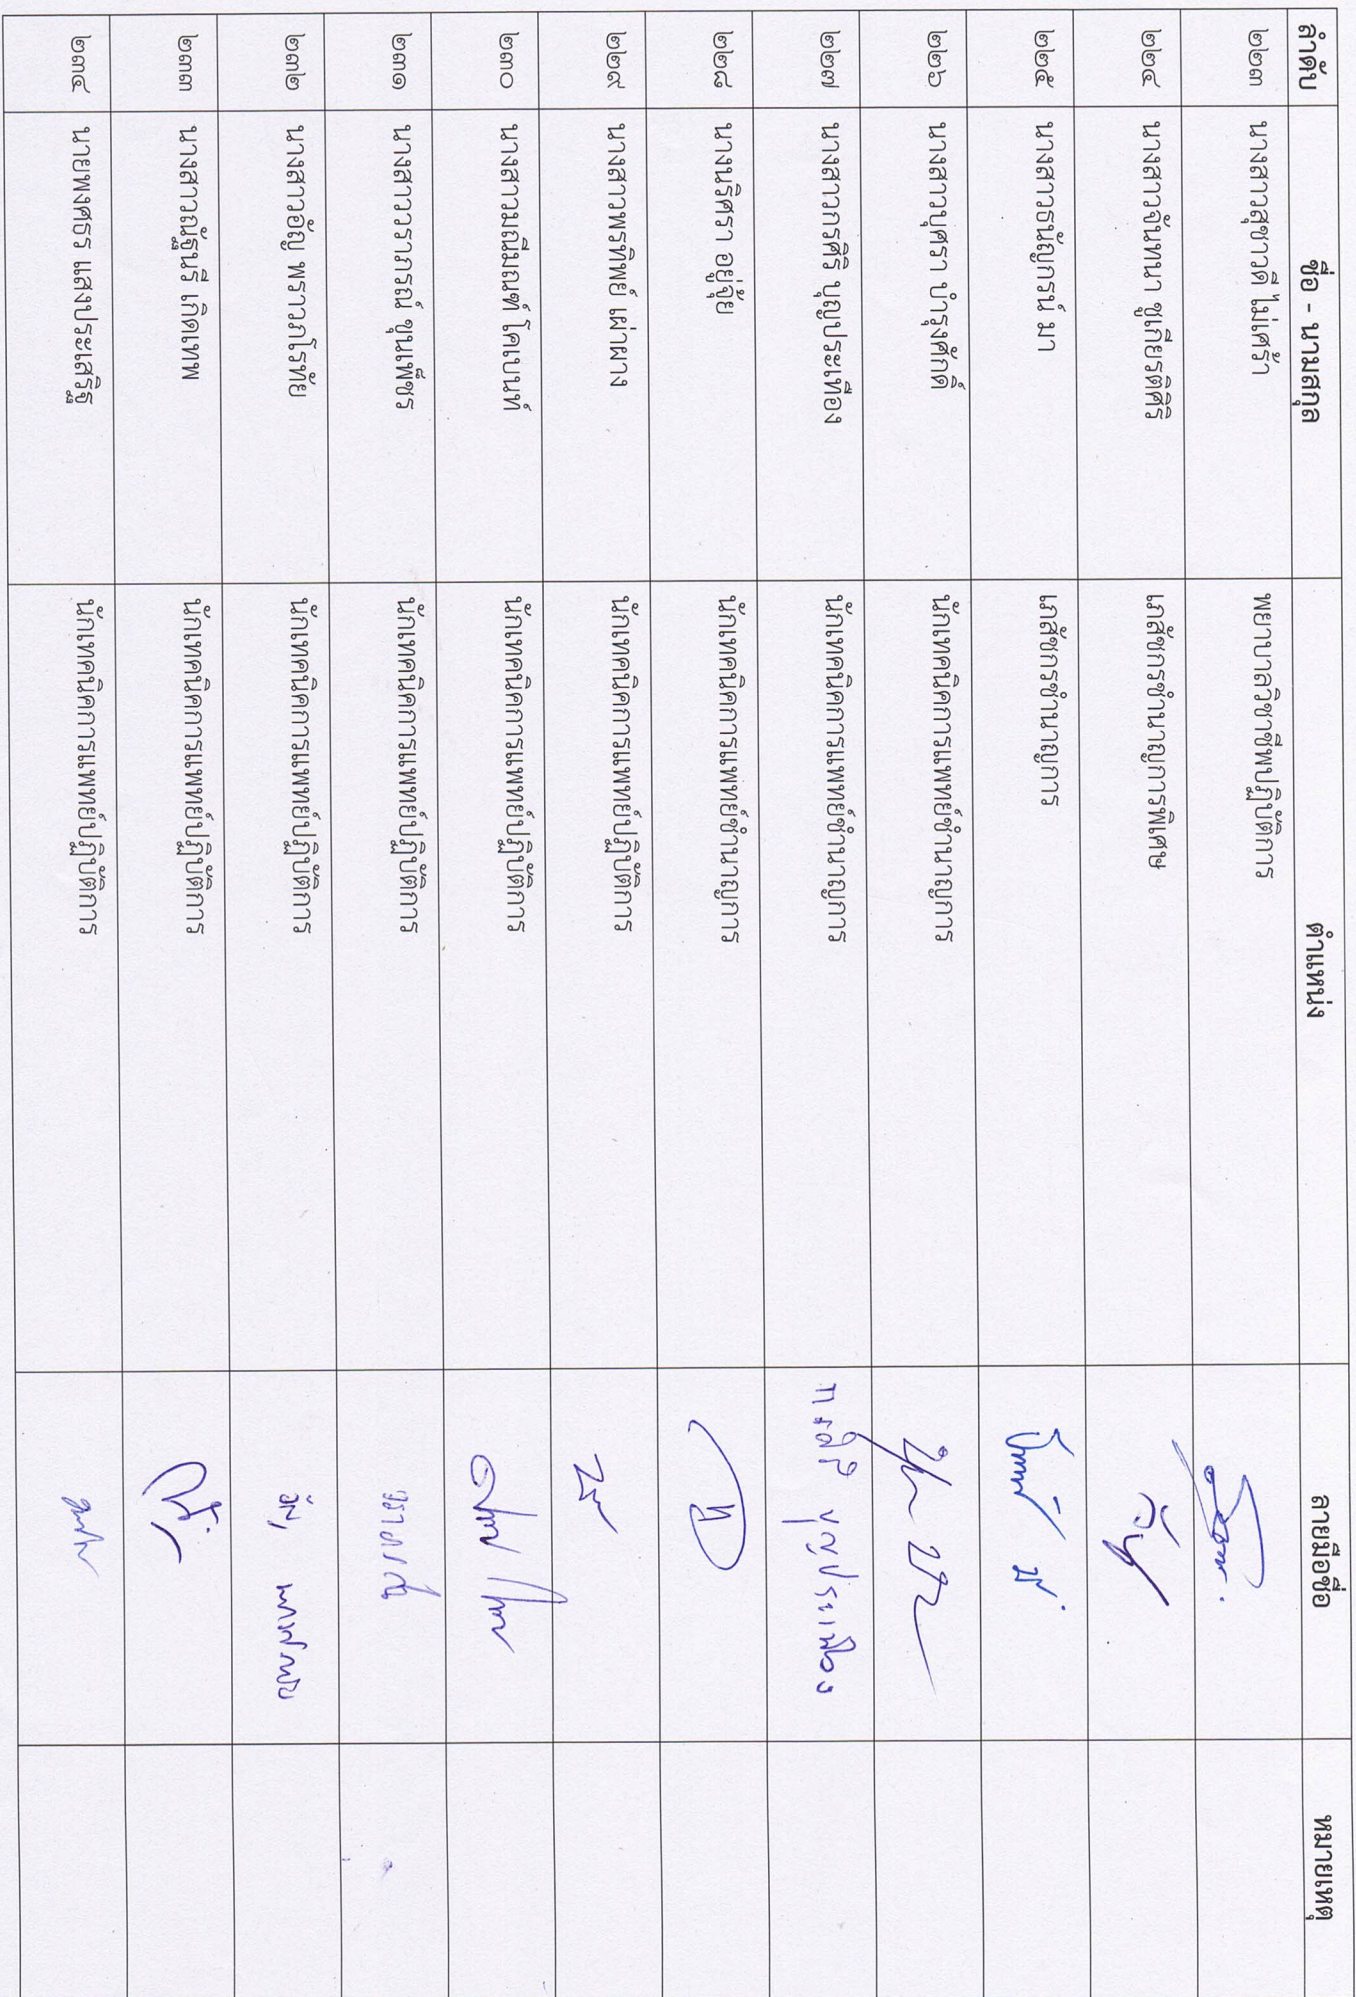 ลำดับ ชื่อ - นามสกุล ตำแหน่ง ลายมือชื่อ หมายเหตุ
๒๒๓ นางสาวสุชาวดี ไม่เศร้า พยาบาลวิชาชีพปฏิบัติการ
๒๒๔ นางสาวจันทนา ชูเกียรติศิริ เภสัชกรชำนาญการพิเศษ
๒๒๕ นางสาวธนัญกรณ์ มา เภสัชกรชำนาญการ
๒๒๖ นางสาวบุศรา บำรุงศักดิ์ นักเทคนิคการแพทย์ชำนาญการ
๒๒๗ นางสาวกรศิริ บุญประเทือง นักเทคนิคการแพทย์ชำนาญการ กรศิริ บุญประเทือง
๒๒๘ นางนริศรา อยู่จุ้ย นักเทคนิคการแพทย์ชำนาญการ
๒๒๙ นางสาวพรทิพย์ เผ่าผาง นักเทคนิคการแพทย์ปฏิบัติการ
๒๓๐ นางสาวมณีมณฑ์ โคเบนท์ นักเทคนิคการแพทย์ปฏิบัติการ
๒๓๑ นางสาววราภรณ์ ขุนเพ็ชร นักเทคนิคการแพทย์ปฏิบัติการ วราภรณ์
๒๓๒ นางสาวอัญ พราวภโรทัย นักเทคนิคการแพทย์ปฏิบัติการ
๒๓๓ นางสาวณัฐนรี เกิดเทพ นักเทคนิคการแพทย์ปฏิบัติการ
๒๓๔ นายพงศธร แสงประเสริฐ นักเทคนิคการแพทย์ปฏิบัติการ